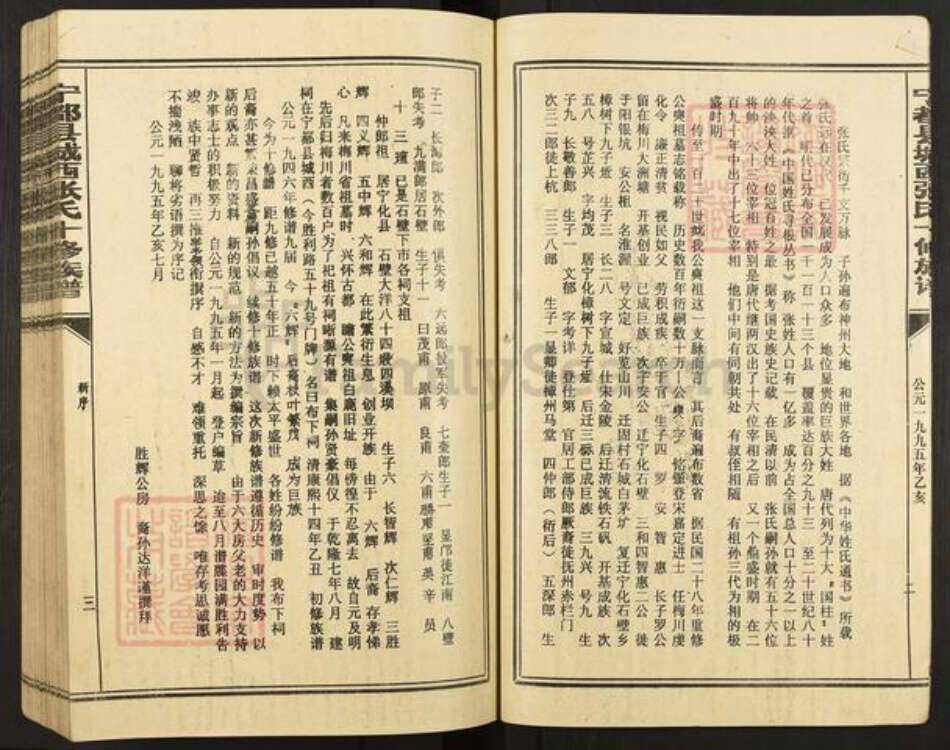 公元一九九五年乙亥
张氏宗衍千支万脉 子孙遍布神州大地 和世界各地 据《中华姓氏通书》所载
张氏远在汉代 已发展成为人口众多 地位显贵的巨族大姓 唐代列为十大“国柱”姓
之首 明代已分布全国一千一百一十三个县 覆盖率达百分之九十三 至二十世纪八十
年代淇《中国姓氏寻根丛书》称 张姓人口有一亿多 成为占全国总人口十分之一以上
的泱泱大姓 位冠百姓之最 据考国史族史记载 在民清以前 张氏嗣孙就有五十六位
将帅 六十三位宰相 特别是唐代继两汉出了十六位宰相之后 又一个鼎盛时期 在二
百九十年中出了十七位宰相 他们中间有同朝共处 有叔侄相随 有祖孙三代为相的极
盛时期
传至 百 十世 就我公奭祖这一支脉而言 其后裔遍布数省 据民国二十八年重修
公奭祖墓志铭载称 历史数百年衍嗣数十万 公奭 字 恪 登宋嘉定进士 任梅川虔
化令 廉正清贫 视民如父 劳积成疾 卒于官 生子四 罗 安 智 惠 长子罗公
留在梅川大洲塘 开基创业 已成巨族 次子安公 迁宁化石壁 三和四智惠二公 徙
于阳银坑 安公柩 名淮渥 号文定 好览山川 迁固村石城白茅圹 复迁宁化石壁乡
樟树下九子坵 生子三 长二八 字宣城 仕宋金陵 后迁清流铁石矾 开基成族 次
五八 号正兴 字均茂 居宁化樟树下九子坵 后迁三 已成巨族 三九兴 号九 生
子九 长敬善郎 生子一 文郁 字考详 登仕第 官居工部侍郎厥裔徒抚州赤栏门
次三二郎徒上杭 三三八郎 生子一显卿徒樟州马堂 四仲郎（衍后） 五深郎 生
二
宁都县城西张氏十修族谱
新序
子二 长海郎 次外郎 俱失考 六远郎役军失考 七奎郎生子一 显郎徒江南 八璧
郎失考 九满郎居石壁 生子十一 曰茂甫 原甫 良甫 六甫胜甫坚甫英 辛 员
十 三 瑄 已是石壁下市各祠支祖
仲郎祖 居宁化县 石壁大洋八十四塅四溪坝 生子六 长智辉 次仁辉 三胜
辉 四义辉 五中辉 六和辉 在此繁衍生息 创业开族 由于 六辉 后裔 存孝悌
心 凡来梅川省祖墓时 兴怀古都 瞻公奭祖白鹿旧址 每傍徨不忍离去 故自元及明
先后归梅川者数百户为了祀祖有祠晰源有谱 集嗣孙贤豪倡仪 于乾隆七年八月 建
祠在宁都县城西（今胜利路五十九号门牌）名曰布下祠 清康熙十四年乙丑 初修族谱
公元一九四六年修谱九届 今“六辉”后裔枝叶繁茂 成为巨族
今为十修谱 距九修已越五十年正 时下赖太平盛世 各姓纷纷修谱 我布下祠
后裔亦甚 荣昌盛意嗣孙倡议 续修十修族谱 这次新修族谱遵循历史 审时度势 以
新的观点 新的资料 新的规范 新的方法为撰编宗旨 由于六大房父老的大力支持
办事志士的积极努力 自公元一九九五年一月起 登户编草 逾至八月谱牒园满胜利告
竣 族中贤哲 再三推 撰序 自感不才 难领重托 深思之馀 唯存考思诚愿
不揣浅陋 聊将劣语撰为序记
公元一九九五年乙亥七月
胜辉公房 裔孙达洋谨撰拜
三